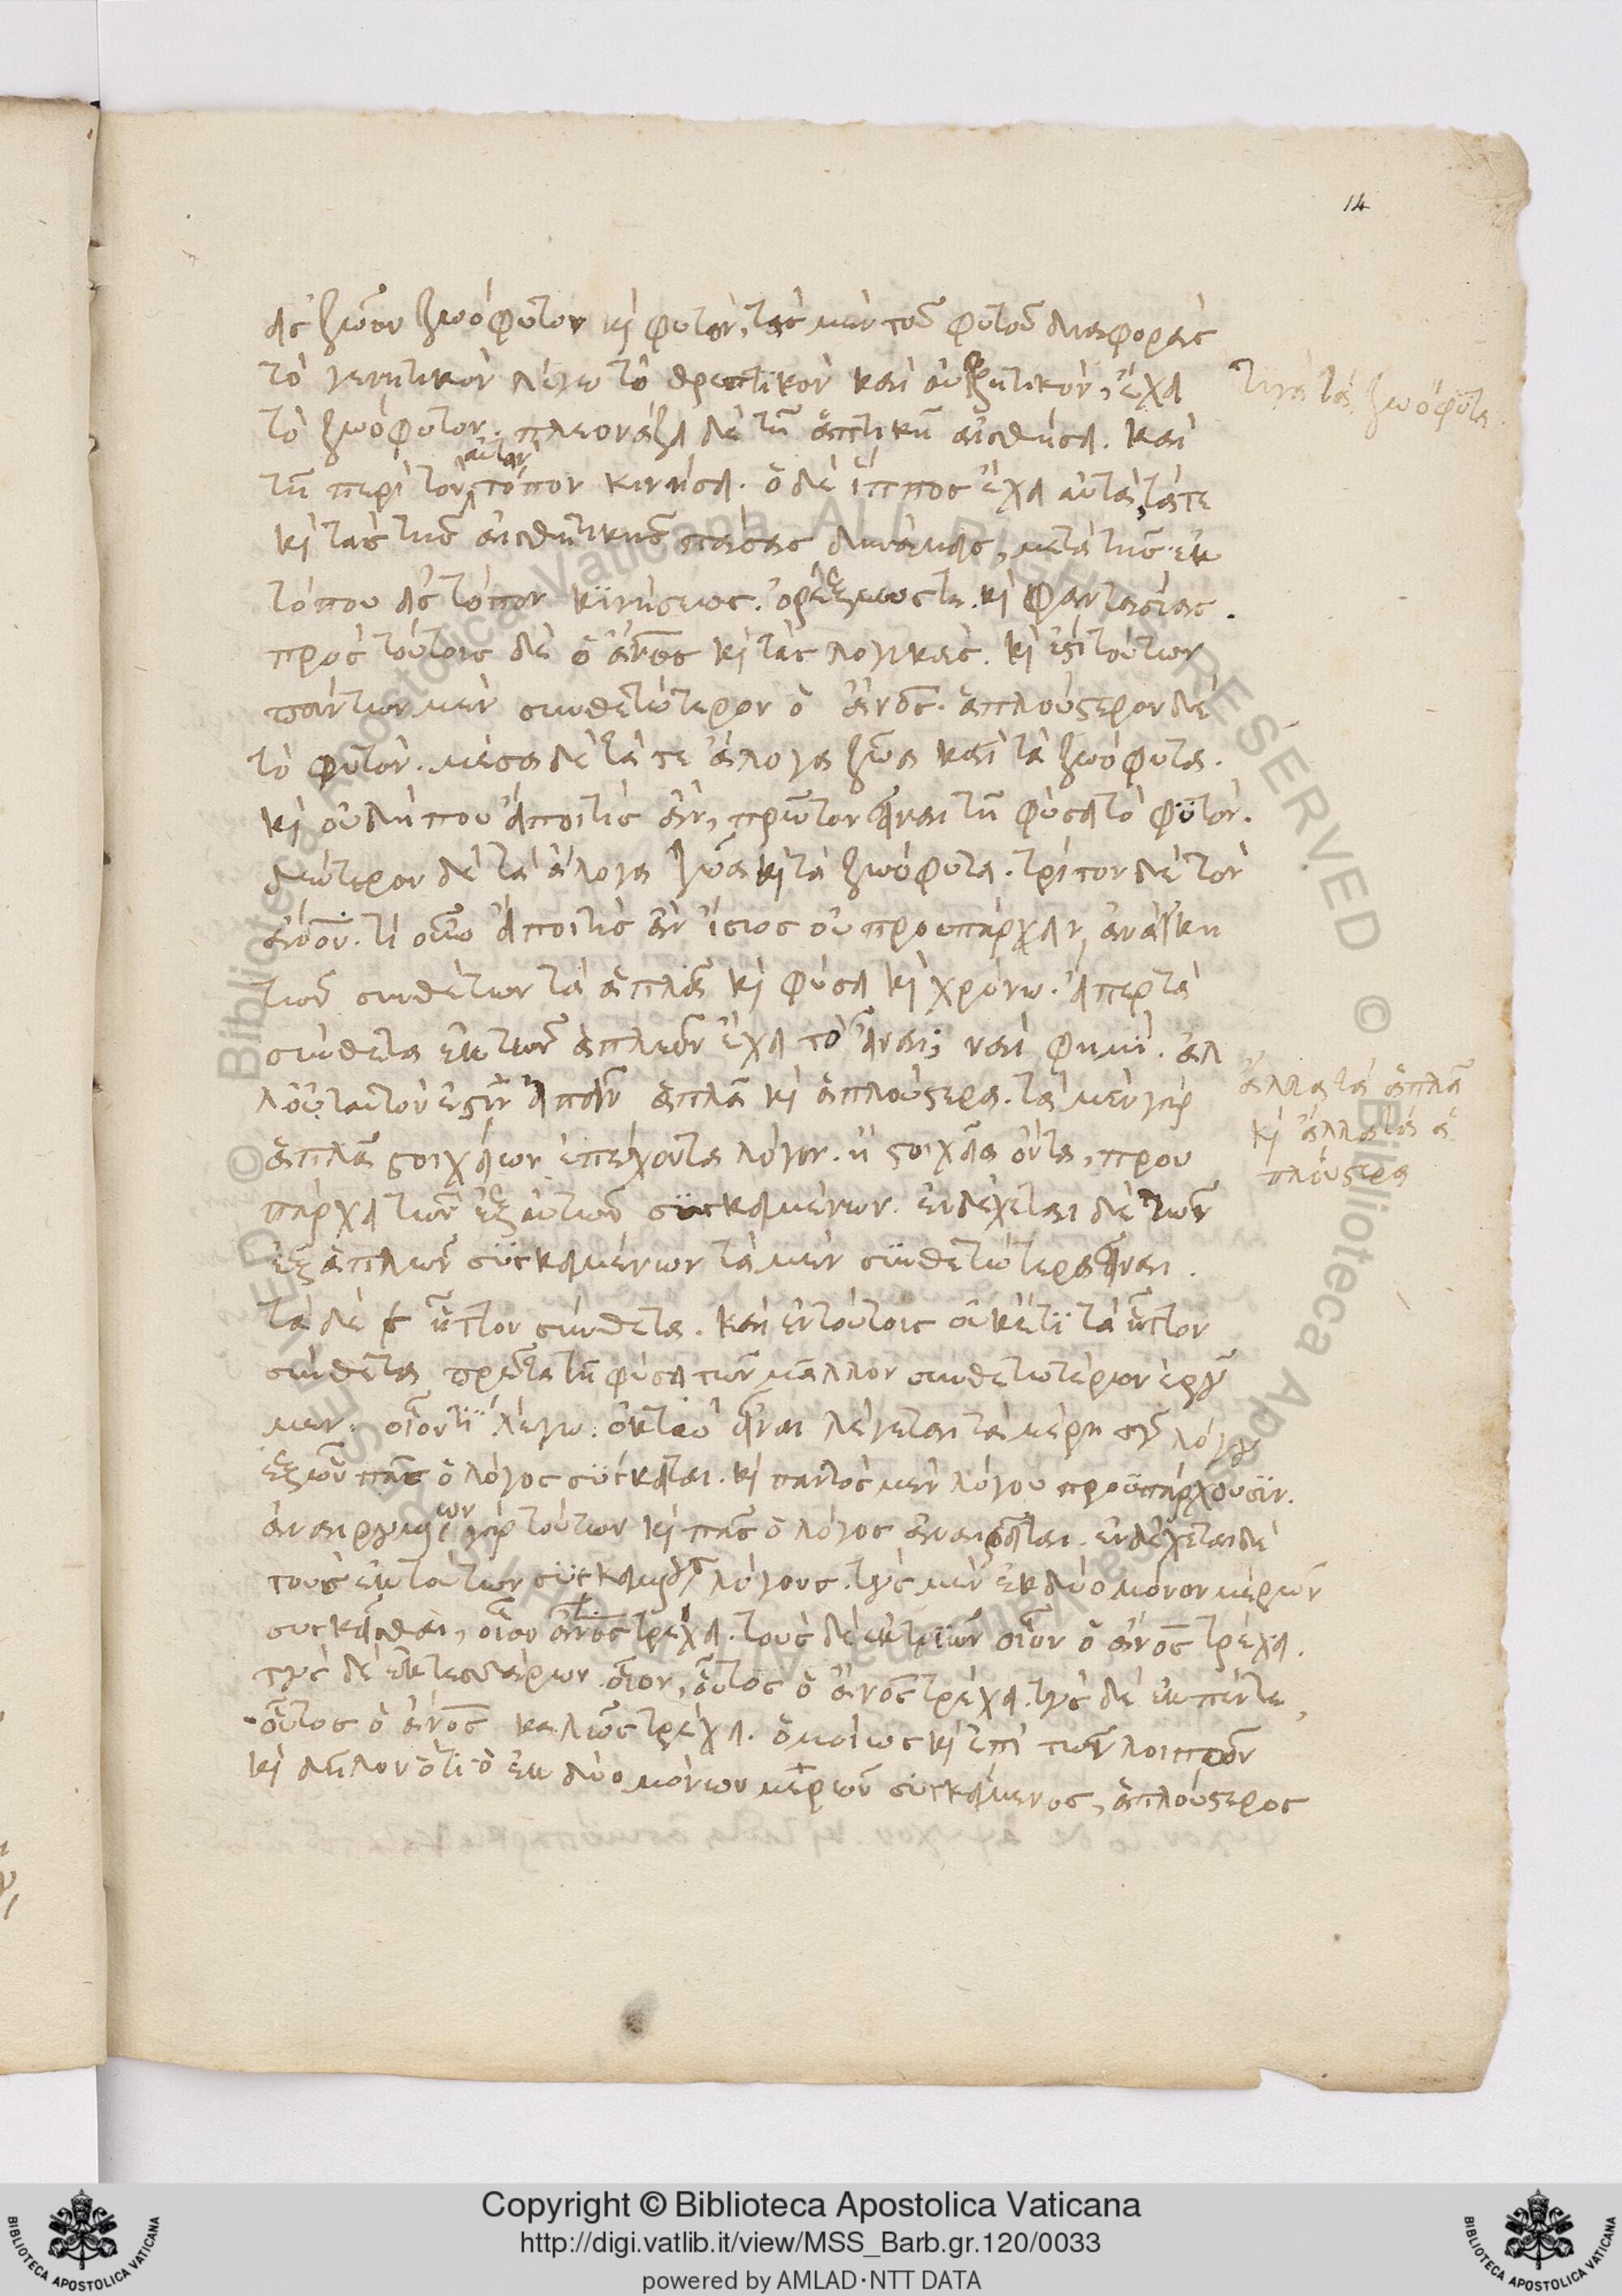 14
εἰς ζῶον ζωόφυτον κὶ φυτόν, τὰς μὲν τοῦ φυτοῦ διαφορὰς
τὸ γεννητικὸν λέγω τὸ θρεπτικὸν καὶ αὐξητικόν, ἔχει
τίνα τὰ ζωόφυτα
τὸ ζωόφυτον. πλεονάζει δὲ τῆ ἁπτικῆ αἰσθήσει. καὶ
τῆ περὶ τὸν αὐτὸν τόπον κινήσει. ὁ δὲ ἵππος ἔχει αὐτά, τάτε
κὶ τὰς τῆς αἰσθητικῆς πάσας δυνάμεις, μετὰ τῆς ἐκ
τόπου εἰς τόπον κϊνήσεως. ὀρέξεως τε. κὶ φαντασίας.
πρὸς τούτοις δὲ ὁ ἄνος κὶ τὰς λογικάς. κὶ ἐστὶ τούτων
πάντων μὲν συνθετώτερον ὁ ἄνος. ἁπλούστερον δὲ
τὸ φυτόν. μέσα δὲ τά τε ἄλογα ζῶα καὶ τὰ ζωόφυτα.
κὶ οὐδήπου εἴποι τὶς ἂν, πρῶτον εἶναι τῆ φύσει τὸ φϋτόν.
δεύτερον δὲ τὰ ἄλογα ζῶα κὶ τὰ ζωόφυτα. τρίτον δὲ τὸν
ἄνον. τί οὖν εἴποι τὶς ἂν ἴσως οὐ προυπάρχειν, ἀνάγκη
τῶν συνθέτων τὰ ἁπλᾶ κὶ φύσει κὶ χρόνω. εἴπερ τὰ
σύνθετα ἐκ τῶν ἁπλῶν ἔχει τὸ εἶναι; ναὶ φημί. ἀλ
λ' οὐ ταυτόν ἐστιν εἰπεῖν ἁπλᾶ κὶ ἁπλούστερα. τὰ μὲν γὰρ
ἄλλα τὰ ἁπλᾶ
κὶ ἄλλα τὰ ἁ
πλούστερα
ἁπλᾶ στοιχείων ἐπέχοντα λόγον. ἢ στοιχεῖα ὄντα, πρου
πάρχει τῶν ἐξ αὐτῶν συγκειμένων. ἐνδέχεται δὲ τῶν
ἐξ ἁπλῶν συγκειμένων τὰ μὲν συνθετώτερα εἶναι.
τὰ δὲ ἧττον σύνθετα. καὶ ἐν τούτοις οὐκέτϊ τὰ ἧττον
σύνθετα πρῶτα τῆ φύσει τῶν μᾶλλον συνθετωτέρων ἐροῦ
μεν. οἷον τϊ λέγω: ὀκτὼ εἶναι λέγεται τὰ μέρη τοῦ λόγου
ἐξ ὧν πᾶς ὁ λόγος σύγκειται. κὶ παντὸς μὲν λόγου προϋπάρχουσιν.
ἀναιρουμένων γὰρ τούτων κὶ πᾶς ὁ λόγος ἀναιρεῖται. ἐνδέχεται δὲ
τοὺς ἐκ τούτων συγκειμένους λόγους. τοὺς μὲν ἐκ δύο μόνον μερῶν
συγκεῖσθαι, οἷον ἄνος τρέχει. τοὺς δὲ ἐκ τριῶν οἷον ὁ ἄνος τρέχει.
τοὺς δὲ ἐκ τεσσάρων οἷον, οὗτος ὁ ἄνος τρέχει. τοὺς δὲ ἐκ πέντε,
οὗτος ὁ ἄνος καλῶς τρέχει. ὁμοίως κὶ ἐπὶ τῶν λοιπῶν
κὶ δῆλον ὅτι ὁ ἐκ δύο μόνων μερῶν συγκείμενος, ἁπλούστερος
© Biblioteca Apostolica Vaticana ALL RIGHTS RESERVED
Copyright © Biblioteca Apostolica Vaticana
http://digi.vatlib.it/view/MSS_Barb.gr.120/0033
powered by AMLAD·NTT DATA
BIBLIOTECA APOSTOLICA VATICANA
BIBLIOTECA APOSTOLICA VATICANA